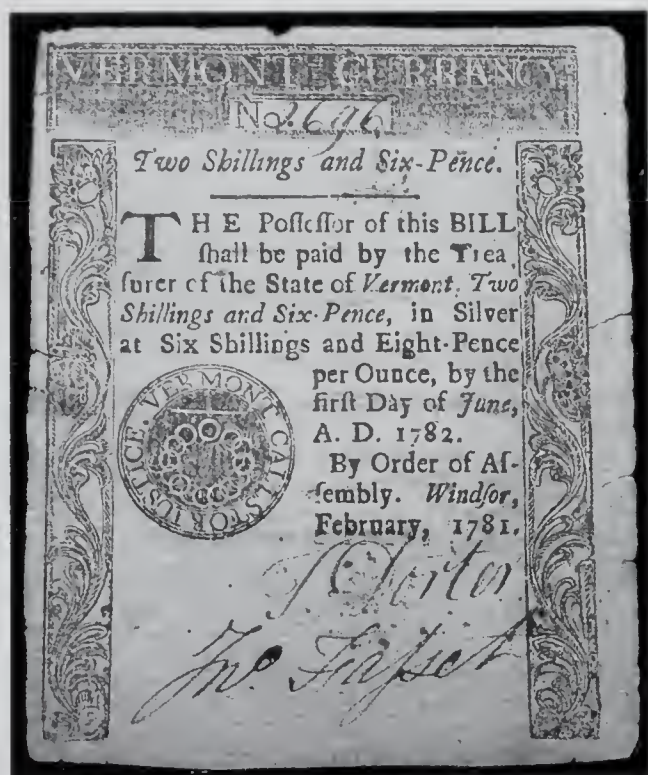 VERMONT CURRENCY
No. 2696
Two Shillings and Six-Pence.
THE Poſſeſſor of this BILL
ſhall be paid by the Trea
ſurer of the State of Vermont, Two
Shillings and Six-Pence, in Silver
at Six Shillings and Eight-Pence
per Ounce, by the
firſt Day of June,
A. D. 1782.
By Order of Aſ-
ſembly. Windſor,
February, 1781.
VERMONT CALLS FOR JUSTICE.
T Porter
Jno Faſset